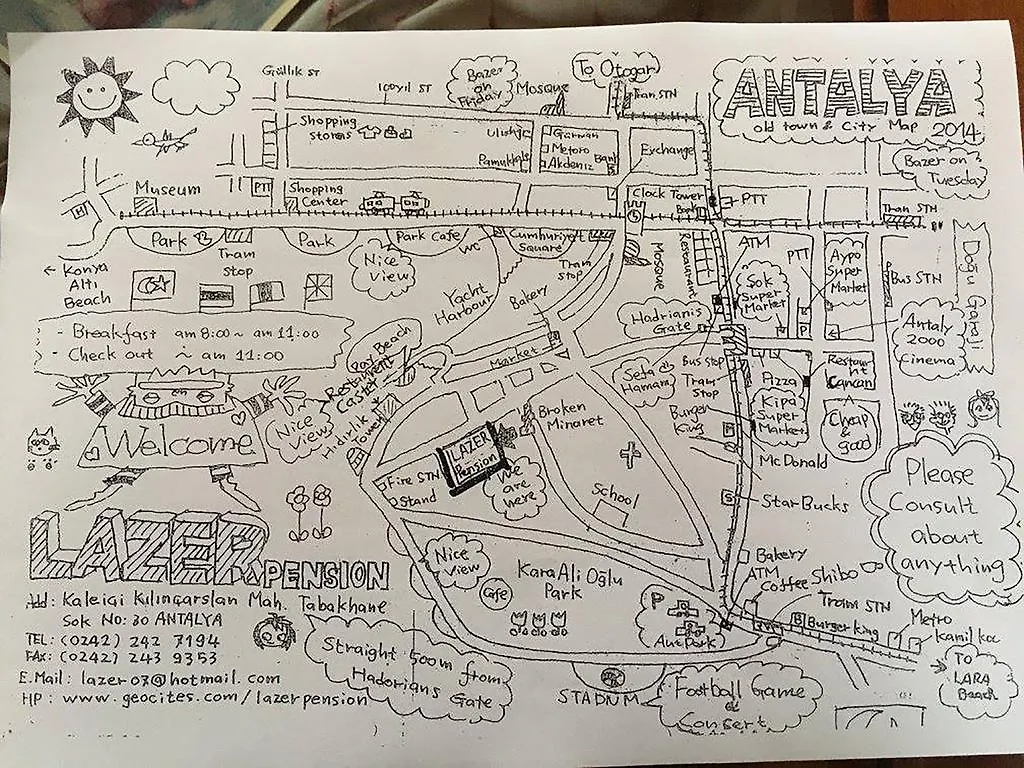 Güllük ST
100yil ST
Bazer
on
Friday
Mosque
To Otogar
Tram STN
ANTALYA
old town & City Map 2014
Shopping
stores
Ulusoy
Pamukkale
German
Metoro
Akdeniz
Bank
Exchange
Bazer on
Tuesday
Museum
PTT
Shopping
Center
Clock Tower
Bank
PTT
Tran STN
Park
Park
Park Cafe
WC
Cumhuriyet
Square
Tram
stop
Tram
stop
Nice
View
Mosque
Restaurant
ATM
PTT
Aypo
Super
Market
Sok
Super
Market
Bus STN
Doğu Garaji
← Konya
Altı
Beach
Yacht
Harbour
Bakery
Hadrianis
Gate
Antaly
2000
Cinema
- Breakfast am 8:00 ~ am 11:00
- Check out ~ am 11:00
Market
Bus stop
Tram
stop
Sefa
Hamam
Pizza
Restaurant
Cancan
Beach
Restaurant
Nice
View
Hidirlik
Tower
Broken
Minaret
Burger
King
Kipa
Super
Market
Cheap
&
good
Welcome
LAZER
Pension
We
are
here
Fire STN
Stand
McDonald
School
StarBucks
Please
Consult
about
anything
LAZER PENSION
Nice
View
Cafe
KaraAli Oğlu
Park
Bakery
ATM
Coffee Shibo
Tram STN
Burger King
Metro
Kamil koc
P
AutPark
To
LARA
Beach
Ad: Kaleici Kilincarslan Mah. Tabakhane
Sok No: 30 ANTALYA
TEL: (0242) 242 7194
FAX: (0242) 243 9353
E.Mail: lazer03@hotmail.com
HP: www.geocites.com/lazerpension
Straight 500m from
Hadorians
Gate
STADIUM
Football Game
&
Consert